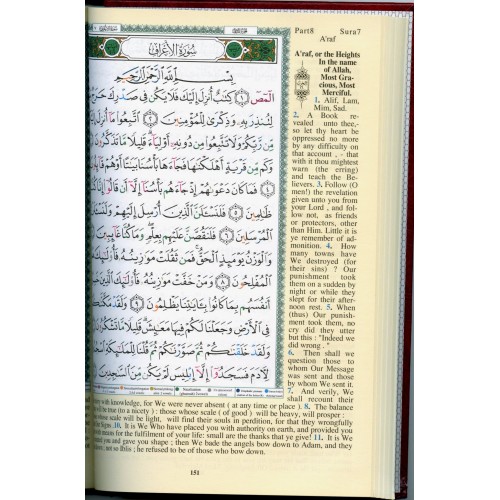 Part8 Sura7
A'raf
سُورَةُ الأَعْرَافِ
بِسْمِ اللَّهِ الرَّحْمَٰنِ الرَّحِيمِ
الٓمٓصٓ ١ كِتَٰبٌ أُنزِلَ إِلَيْكَ فَلَا يَكُن فِي صَدْرِكَ حَرَجٌ
بِهِ وَذِكْرَىٰ لِلْمُؤْمِنِينَ ٢ ٱتَّبِعُوا۟ مَآ أُنزِلَ
مِّن رَّبِّكُمْ وَلَا تَتَّبِعُوا۟ مِن دُونِهِۦٓ أَوْلِيَآءَ قَلِيلًا مَّا تَذَكَّرُونَ
وَكَم مِّن قَرْيَةٍ أَهْلَكْنَٰهَا فَجَآءَهَا بَأْسُنَا بَيَٰتًا أَوْ هُمْ
٤ فَمَا كَانَ دَعْوَىٰهُمْ إِذْ جَآءَهُم بَأْسُنَآ إِلَّآ أَن قَالُوٓا۟
ظَٰلِمِينَ ٥ فَلَنَسْـَٔلَنَّ ٱلَّذِينَ أُرْسِلَ إِلَيْهِمْ وَلَنَسْـَٔلَنَّ
ٱلْمُرْسَلِينَ ٦ فَلَنَقُصَّنَّ عَلَيْهِم بِعِلْمٍ وَمَا كُنَّا غَآئِبِينَ
وَٱلْوَزْنُ يَوْمَئِذٍ ٱلْحَقُّ فَمَن ثَقُلَتْ مَوَٰزِينُهُۥ فَأُو۟لَٰٓئِكَ
ٱلْمُفْلِحُونَ ٨ وَمَنْ خَفَّتْ مَوَٰزِينُهُۥ فَأُو۟لَٰٓئِكَ ٱلَّذِينَ
أَنفُسَهُم بِمَا كَانُوا۟ بِـَٔايَٰتِنَا يَظْلِمُونَ ٩ وَلَقَدْ
فِي ٱلْأَرْضِ وَجَعَلْنَا لَكُمْ فِيهَا مَعَٰيِشَ قَلِيلًا مَّا تَشْكُرُونَ
وَلَقَدْ خَلَقْنَٰكُمْ ثُمَّ صَوَّرْنَٰكُمْ ثُمَّ قُلْنَا لِلْمَلَٰٓئِكَةِ
لِـَٔادَمَ فَسَجَدُوٓا۟ إِلَّآ إِبْلِيسَ لَمْ يَكُن مِّنَ ٱلسَّٰجِدِينَ
A'raf, or the Heights
In the name
of Allah,
Most Gra-
cious, Most
Merciful.
1. Alif, Lam,
Mim, Sad.
2. A Book re-
vealed unto thee,-
so let thy heart be
oppressed no more
by any difficulty on
that account , - that
with it thou mightest
warn (the erring)
and teach the Be-
lievers. 3. Follow (O
men!) the revelation
given unto you from
your Lord , and fol-
low not, as friends
or protectors, other
than Him. Little it is
ye remember of ad-
monition. 4. How
many towns have
We destroyed (for
their sins) ? Our
punishment took
them on a sudden by
night or while they
slept for their after-
noon rest. 5. When
(thus) Our punish-
ment took them, no
cry did they utter
but this : "Indeed we
did wrong . "
6. Then shall we
question those to
whom Our Message
was sent and those
by whom We sent it.
7. And verily, We
shall recount their
with knowledge, for We were never absent ( at any time or place ). 8. The balance
will be true (to a nicety ) : those whose scale ( of good ) will be heavy, will prosper :
whose scale will be light, will find their souls in perdition, for that they wrongfully
Signs 10. It is We Who have placed you with authority on earth, and provided you
with means for the fulfilment of your life: small are the thanks that ye give! 11. It is We
you and gave you shape ; then We bade the angels bow down to Adam, and they
not so Iblis ; he refused to be of those who bow down.
151